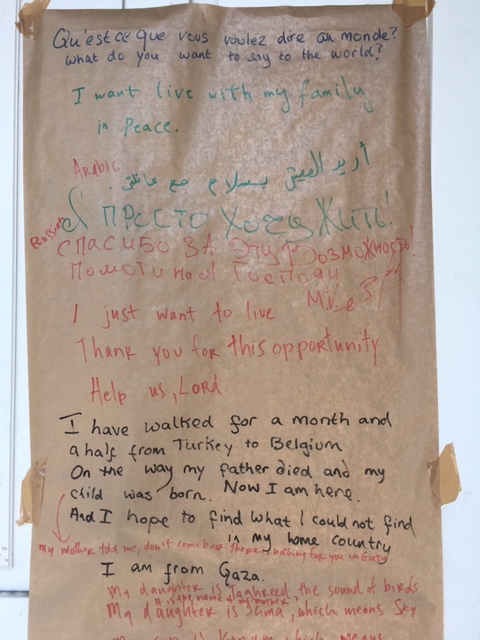 Qu'est ce que vous voulez dire au monde?
What do you want to say to the world?
I want live with my family
in Peace.
Arabic
أريد العيش بسلام مع عائلتي.
Russian
Я ПРОСТО ХОЧУ ЖИТЬ!
СПАСИБО ЗА ЭТУ ВОЗМОЖНОСТЬ!
ГОСПОДИ
I just want to live
Thank you for this opportunity
Help us, Lord
I have walked for a month and
a half from Turkey to Belgium
On the way my father died and my
child was born. Now I am here.
And I hope to find what I could not find
in my home country
My mother told me, don't come back there is nothing for you in Gaza
I am from Gaza.
My daughter is Taghreed the sound of birds
It is the name of my mother,
My daughter is Sama, which means Sky
which means